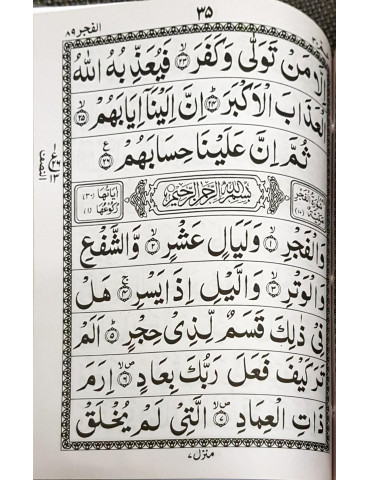 ٣٥
الفجر ٨٩
اِلَّا مَنْ تَوَلّٰى وَكَفَرَ ﴿٢٣﴾ فَيُعَذِّبُهُ اللّٰهُ
الْعَذَابَ الْاَكْبَرَ ﴿٢٤﴾ اِنَّ اِلَيْنَاۤ اِيَابَهُمْ ﴿٢٥﴾
ثُمَّ اِنَّ عَلَيْنَا حِسَابَهُمْ ﴿٢٦﴾
بِسْمِ اللّٰهِ الرَّحْمٰنِ الرَّحِيْمِ
اٰيَاتُهَا (٣٠)
رُكُوْعُهَا (١)
وَالْفَجْرِ ﴿١﴾ وَلَيَالٍ عَشْرٍ ﴿٢﴾ وَّالشَّفْعِ
وَالْوَتْرِ ﴿٣﴾ وَالَّيْلِ اِذَا يَسْرِ ﴿٤﴾ هَلْ
فِيْ ذٰلِكَ قَسَمٌ لِّذِيْ حِجْرٍ ﴿٥﴾ اَلَمْ
تَرَ كَيْفَ فَعَلَ رَبُّكَ بِعَادٍ ﴿٦﴾ اِرَمَ
ذَاتِ الْعِمَادِ ﴿٧﴾ الَّتِيْ لَمْ يُخْلَقْ
منزل ٧